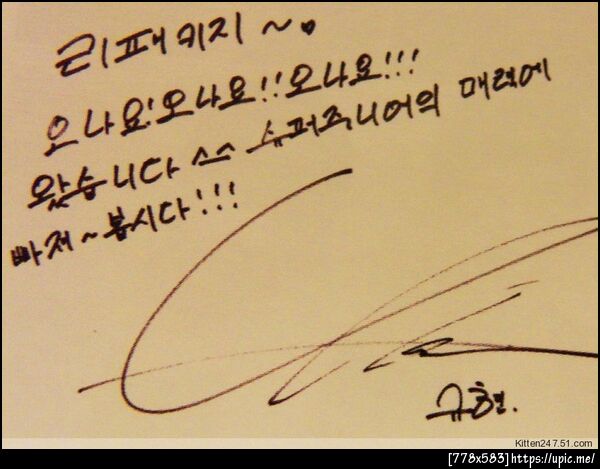 리패키지~♥
오나요!오나요!!오나요!!!
왔습니다 ㅅㅅ 슈퍼주니어의 매력에
빠져~봅시다!!!
규현.
Kitten247.51.com
[778x583]https://upic.me/